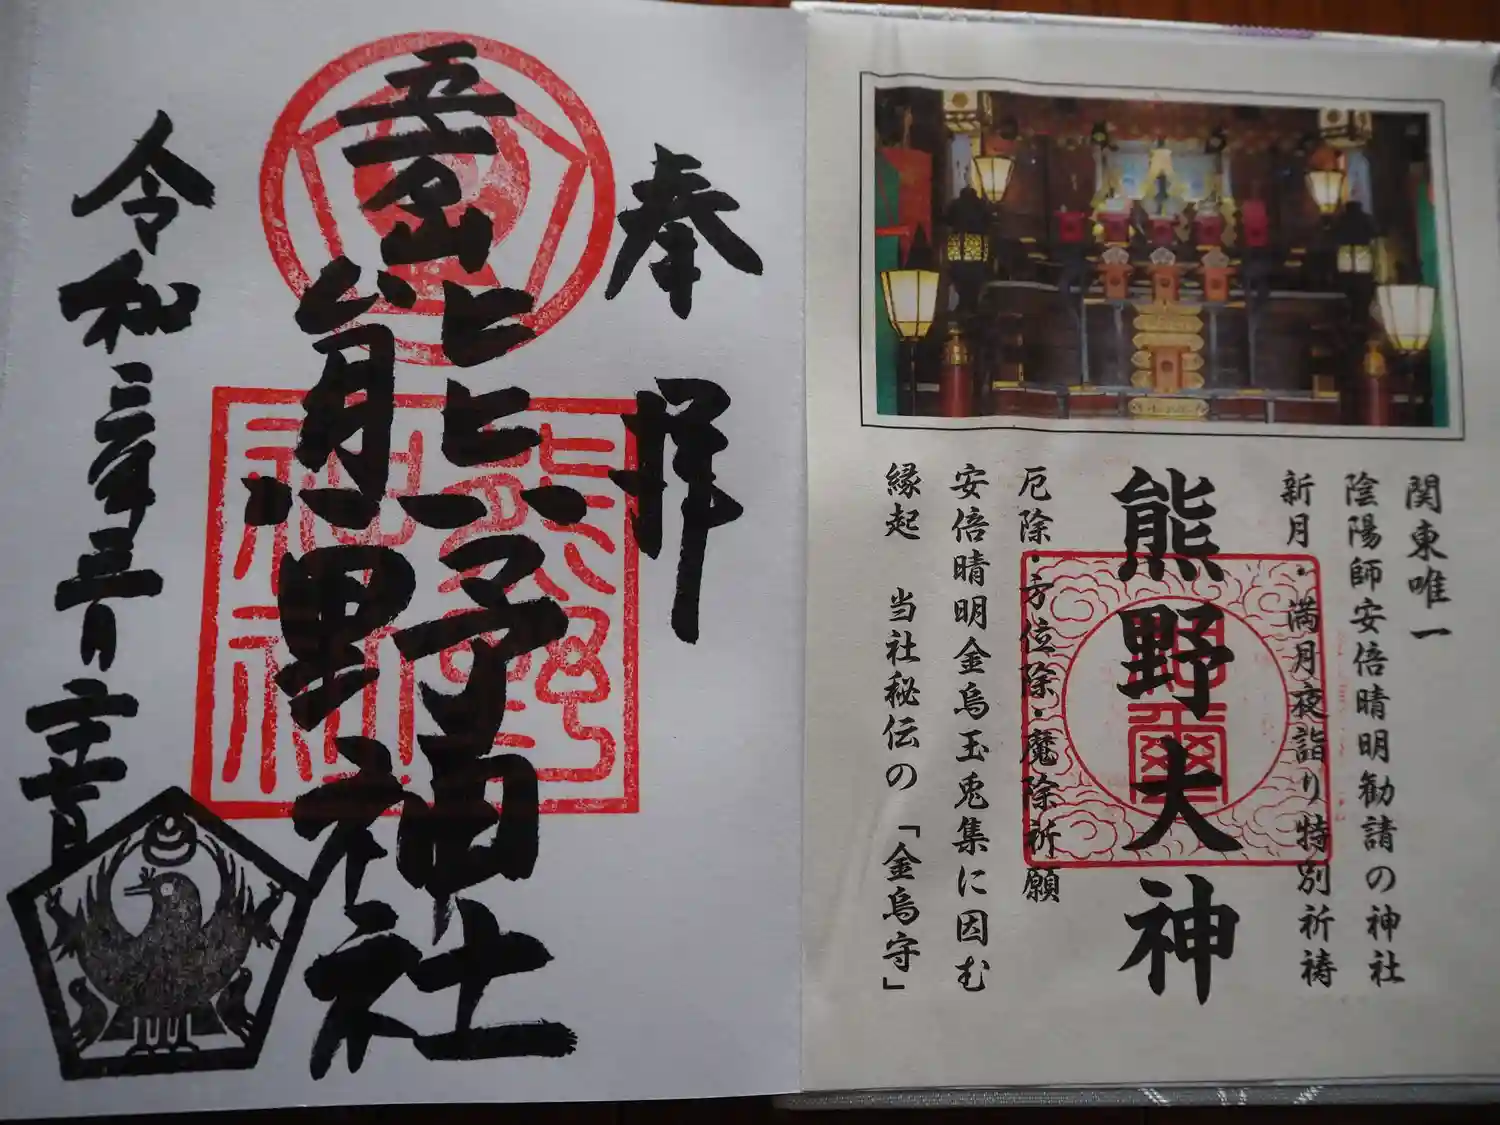 関東唯一
陰陽師安倍晴明勧請の神社
新月・満月夜詣り特別祈祷
熊野大神
厄除・方位除・魔除祈願
安倍晴明金烏玉兎集に因む
縁起 当社秘伝の「金烏守」
奉拝
熊野神社
令和三年三月